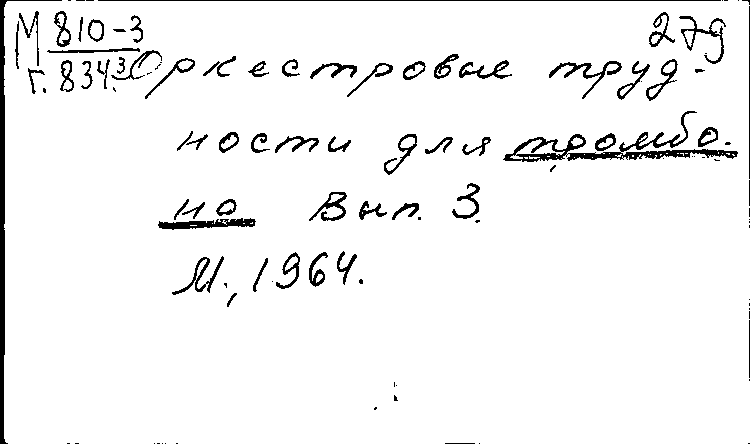 М 810-3 279
г. 834.3 Оркестровые труд-
ности для тромбо-
на Вып. 3.
М., 1964.